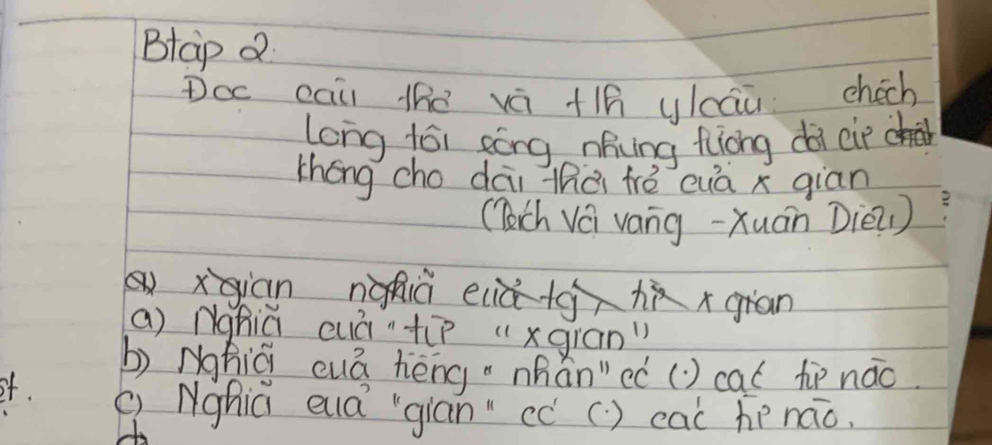 Btập 2.
Đọc câu thơ và tlh ylcầu: chếch
lòng tôi rộng nhưng lượng đời cứ chật
không cho dài thời trẻ của x gian
(Trích Vội vàng - Xuân Diệu)
a) xgian nghĩa của tg, từ x gian
a) Nghĩa của "từ "xgian"
b) Nghĩa của tiếng "nhân" có (.) các từ nào.
c) Nghĩa của "gian" có (.) các từ nào.